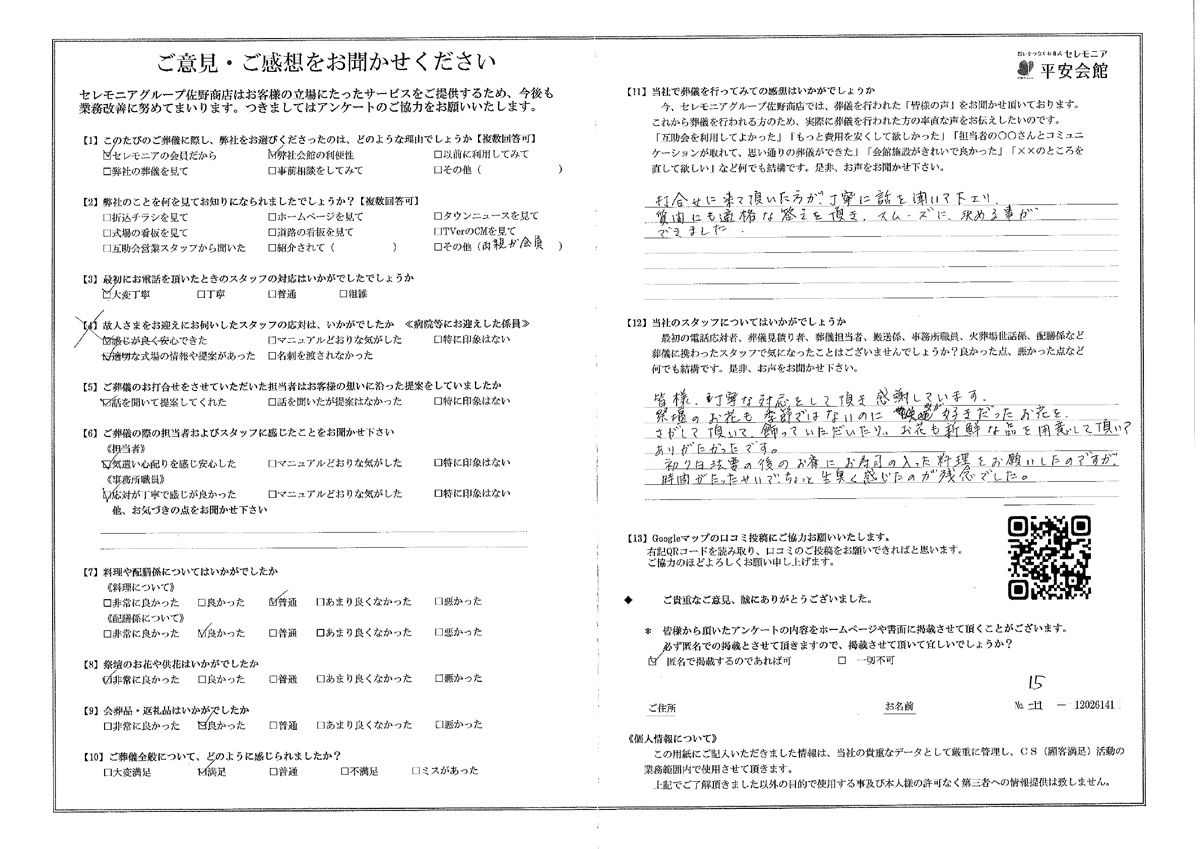 ご意見・ご感想をお聞かせください
セレモニアグループ佐野商店はお客様の立場にたったサービスをご提供するため、今後も
業務改善に努めてまいります。つきましてはアンケートのご協力をお願いいたします。
【1】このたびのご葬儀に際し、弊社をお選びくださったのは、どのような理由でしょうか【複数回答可】
☑セレモニアの会員だから ☑弊社会館の利便性 □以前に利用してみて
□弊社の葬儀を見て □事前相談をしてみて □その他（ ）
【2】弊社のことを何を見てお知りになられましたでしょうか？【複数回答可】
□折込チラシを見て □ホームページを見て □タウンニュースを見て
□式場の看板を見て □道路の看板を見て □TVerのCMを見て
□互助会営業スタッフから聞いた □紹介されて（ ） □その他（両親が会員 ）
【3】最初にお電話を頂いたときのスタッフの対応はいかがでしたでしょうか
☑大変丁寧 □丁寧 □普通 □粗雑
【4】故人さまをお迎えにお伺いしたスタッフの応対は、いかがでしたか ≪病院等にお迎えした係員≫
☑感じが良く安心できた □マニュアルどおりな気がした □特に印象はない
☑適切な式場の情報や提案があった □名刺を渡されなかった
【5】ご葬儀のお打合せをさせていただいた担当者はお客様の想いに沿った提案をしていましたか
☑話を聞いて提案してくれた □話を聞いたが提案はなかった □特に印象はない
【6】ご葬儀の際の担当者およびスタッフに感じたことをお聞かせ下さい
《担当者》
☑気遣い心配りを感じ安心した □マニュアルどおりな気がした □特に印象はない
《事務所職員》
☑応対が丁寧で感じが良かった □マニュアルどおりな気がした □特に印象はない
他、お気づきの点をお聞かせ下さい
【7】料理や配膳係についてはいかがでしたか
《料理について》
□非常に良かった □良かった ☑普通 □あまり良くなかった □悪かった
《配膳係について》
□非常に良かった ☑良かった □普通 □あまり良くなかった □悪かった
【8】祭壇のお花や供花はいかがでしたか
☑非常に良かった □良かった □普通 □あまり良くなかった □悪かった
【9】会葬品・返礼品はいかがでしたか
□非常に良かった ☑良かった □普通 □あまり良くなかった □悪かった
【10】ご葬儀全般について、どのように感じられましたか？
□大変満足 ☑満足 □普通 □不満足 □ミスがあった
セレモニア
平安会館
【11】当社で葬儀を行ってみての感想はいかがでしょうか
今、セレモニアグループ佐野商店では、葬儀を行われた「皆様の声」をお聞かせ頂いております。
これから葬儀を行われる方のため、実際に葬儀を行われた方の率直な声をお伝えしたいのです。
「互助会を利用してよかった」「もっと費用を安くして欲しかった」「担当者の○○さんとコミュニ
ケーションが取れて、思い通りの葬儀ができた」「会館施設がきれいで良かった」「××のところを
直して欲しい」など何でも結構です。是非、お声をお聞かせ下さい。
打合せに来て頂いた方が、丁寧に話を聞いて下さり、
質問にも適格な答えを頂き、スムーズに、決める事が
できました。
【12】当社のスタッフについてはいかがでしょうか
最初の電話応対者、葬儀見積り者、葬儀担当者、搬送係、事務所職員、火葬場世話係、配膳係など
葬儀に携わったスタッフで気になったことはございませんでしょうか？良かった点、悪かった点など
何でも結構です。是非、お声をお聞かせ下さい。
皆様、丁寧な対応をして頂き感謝しています。
祭壇のお花も季節ではないのに 好きだったお花を、
さがして頂いて、飾っていただいたり、お花も新鮮な品を用意して頂いて
ありがたかったです。
初7日法要の後のお斎にお寿司の入った料理をお願いしたのですが、
時間がたったせいで、ちょっと生臭く感じたのが残念でした。
【13】Googleマップの口コミ投稿にご協力お願いいたします。
右記QRコードを読み取り、口コミのご投稿をお願いできればと思います。
ご協力のほどよろしくお願い申し上げます。
◆ ご貴重なご意見、誠にありがとうございました。
＊ 皆様から頂いたアンケートの内容をホームページや書面に掲載させて頂くことがございます。
必ず匿名での掲載とさせて頂きますので、掲載させて頂いて宜しいでしょうか？
☑ 匿名で掲載するのであれば可 □ 一切不可
15
ご住所 お名前 № 11 － 12026141
《個人情報について》
この用紙にご記入いただきました情報は、当社の貴重なデータとして厳重に管理し、ＣＳ（顧客満足）活動の
業務範囲内で使用させて頂きます。
上記でご了解頂きました以外の目的で使用する事及び本人様の許可なく第三者への情報提供は致しません。